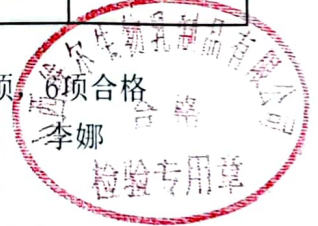 项，6项合格
李娜
维尔生物乳制品有限公司
合格
检验专用章